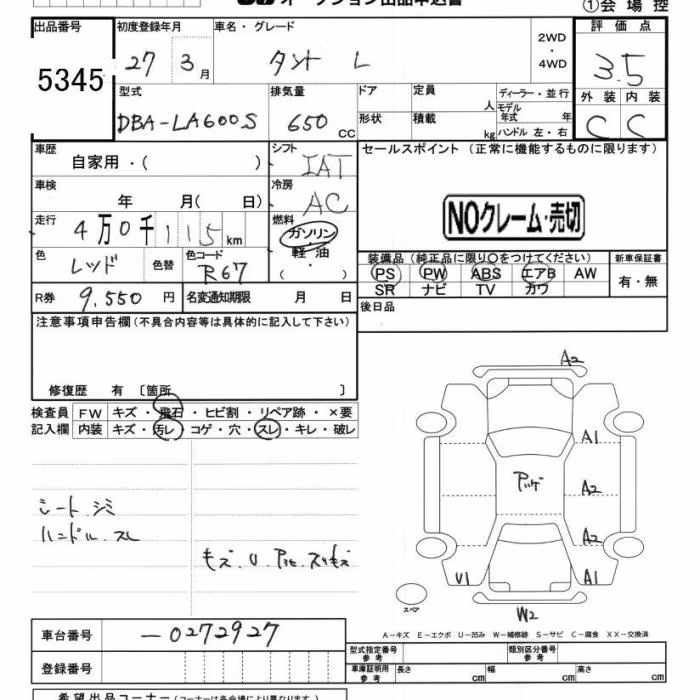 オークション出品申込書
①会場控
出品番号 初度登録年月 車名・グレード 評価点
5345 27 3月 タント L 2WD・4WD 3.5
型式 排気量 ドア 定員 人 ディーラー・並行 外装 内装
DBA-LA600S 650 CC 形状 積載 kg モデル年式 年 ハンドル 左・右 C C
車歴 自家用・( ) シフト IAT セールスポイント (正常に機能するものに限ります)
車検 年 月( 日) 冷房 AC
NOクレーム・売切
走行 4万0千115km 燃料 ガソリン・軽油・( )
色 レッド 色替 色コード R67 装備品 (純正品に限り〇をつけてください) 新車保証書
PS PW ABS エアB AW 有・無
SR ナビ TV カワ
R券 9,550 円 名変通知期限 月 日 後日品
注意事項申告欄 (不具合内容等は具体的に記入して下さい)
修復歴 有 〔箇所 〕
検査員 FW キズ・飛石・ヒビ割・リペア跡・×要
記入欄 内装 キズ・汚レ・コゲ・穴・スレ・キレ・破レ
A2
A1
アゲ A2
シート.シミ
ハンドル.スレ A2
キズ.U.
U1 A1
スペア
W2
A-キズ E-エクボ U-凹み W-補修跡 S-サビ C-腐食 XX-交換済
車台番号 -0272927
型式指定番号 参考 類別区分番号 参考
登録番号 車庫証明用 参考 長さ cm 幅 cm 高さ cm
希望出品コーナー (コーナーは各会場により異なります)